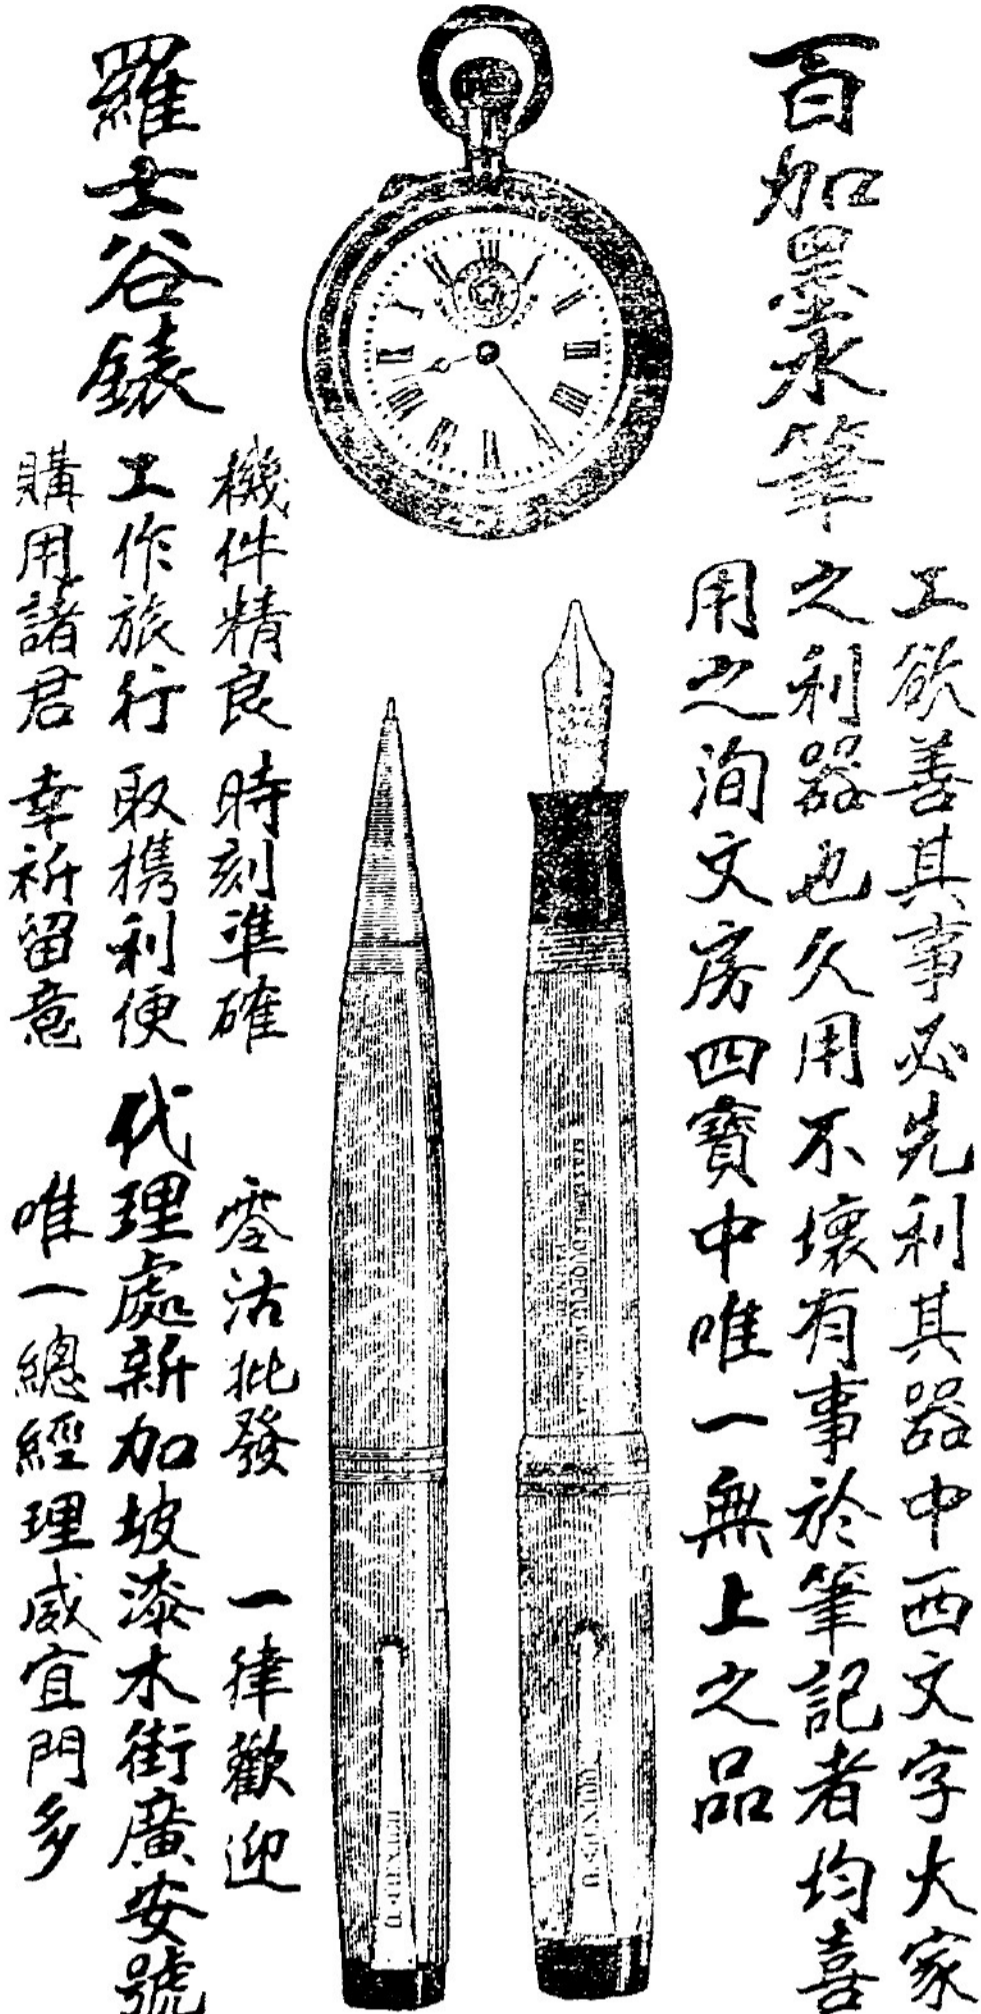 百加墨水筆
工欲善其事必先利其器中西文字大家
之利器也久用不壞有事於筆記者均喜
用之洵文房四寶中唯一無上之品
羅士谷錶
機件精良 時刻準確
工作旅行 取攜利便
購用諸君 幸祈留意
零沽批發 一律歡迎
代理處新加坡漆木街廣安號
唯一總經理威宜門多